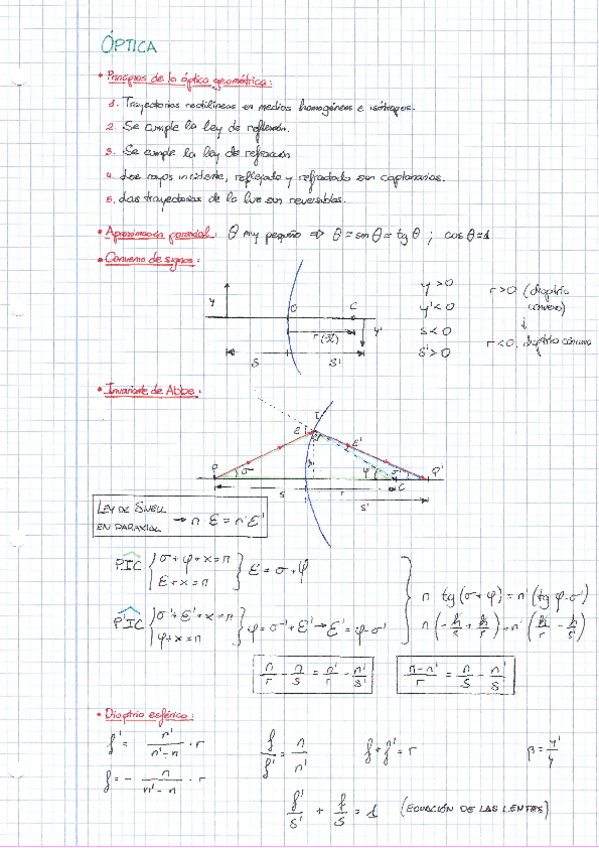 ÓPTICA
• Principios de la óptica geométrica:
1. Trayectorias rectilíneas en medios homogéneos e isótropos.
2. Se cumple la ley de reflexión.
3. Se cumple la ley de refracción
4. Los rayos incidente, reflejado y refractado son coplanarios.
5. Las trayectorias de la luz son reversibles.
• Aproximación paraxial: θ muy pequeño ⇒ θ ≈ sen θ ≈ tg θ ; cos θ ≈ 1
• Convenio de signos:
y O C y'
s s'
y > 0
y' < 0
s < 0
s' > 0
r > 0 (dioptrio
convexo)
↓
r < 0
• Invariante de Abbe:
I
ε ε'
P σ h φ σ' P'
C
s r
s'
LEY DE SNELL
EN PARAXIAL → n · ε = n' ε'
PIC { σ + φ + x = π
ε + x = π } ε = σ + φ
P'IC { σ' + ε' + x = π
φ + x = π } φ = σ' + ε' → ε' = φ - σ'
n tg (σ + φ) = n' (tg φ - σ')
n (- h/s + h/r) = n' (h/r - h/s')
n/r - n/s = n'/r - n'/s'
n - n'/r = n/s - n'/s'
• Dioptrio esférico:
f' = n'/n' - n · r
f = - n/n' - n · r
f/f' = n/n'
f + f' = r
β = y'/y
f'/s' + f/s = 1 (ECUACIÓN DE LAS LENTES)